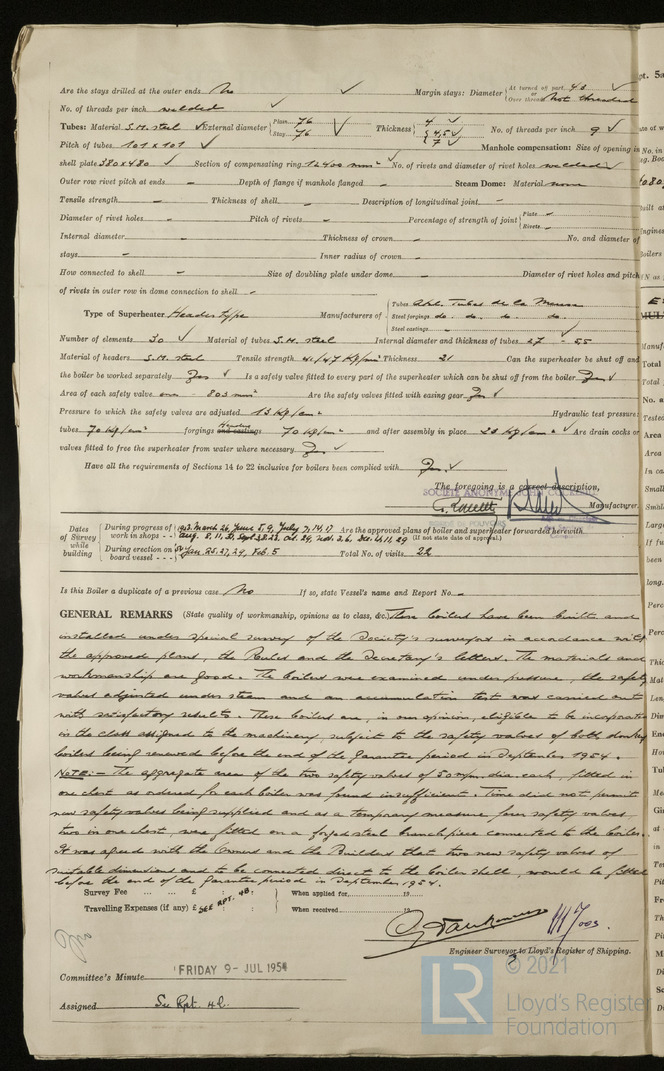 Are the stays drilled at the outer ends No ✓ Margin stays: Diameter { At turned off part, 43 ✓ or Over threads Not threaded
No. of threads per inch welded ✓
Tubes: Material S.M. steel ✓ External diameter { Plain 76 Stay 76 ✓ Thickness { 4 ✓ 4,5 ✓ 7 ✓ No. of threads per inch 9 ✓
Pitch of tubes 101 x 101 ✓ Manhole compensation: Size of opening in
shell plate 380 x 480 ✓ Section of compensating ring 12400 mm² ✓ No. of rivets and diameter of rivet holes welded ✓
Outer row rivet pitch at ends - Depth of flange if manhole flanged - Steam Dome: Material none
Tensile strength - Thickness of shell - Description of longitudinal joint -
Diameter of rivet holes - Pitch of rivets - Percentage of strength of joint { Plate - Rivets -
Internal diameter - Thickness of crown - No. and diameter of
stays - Inner radius of crown -
How connected to shell - Size of doubling plate under dome - Diameter of rivet holes and pitch
of rivets in outer row in dome connection to shell -
Type of Superheater Header type Manufacturers of { Tubes Tubes de la Meuse
Steel forgings do. do. do. do.
Steel castings - ✓
Number of elements 30 ✓ Material of tubes S.M. steel Internal diameter and thickness of tubes 27 -
Material of headers S.M. steel Tensile strength 41/47 Kg/mm² Thickness 21 Can the superheater be shut off and
the boiler be worked separately Yes ✓ Is a safety valve fitted to every part of the superheater which can be shut off from the boiler Yes ✓
Area of each safety valve one - 803 mm² Are the safety valves fitted with easing gear Yes ✓
Pressure to which the safety valves are adjusted 13 Kg/cm² Hydraulic test pressure:
tubes 70 Kg/cm² forgings Headers and castings 70 Kg/cm² and after assembly in place 23 Kg/cm² ✓ Are drain cocks or
valves fitted to free the superheater from water where necessary Yes ✓
Have all the requirements of Sections 14 to 22 inclusive for boilers been complied with Yes ✓
The foregoing is a correct description,
SOCIÉTÉ ANONYME JOHN COCKERILL
Manufacturer.
Dates of Survey while building { During progress of work in shops - - { 1953. March 26, June 5, 9, July 7, 14, 17 Aug. 8, 11, 31, Sept 23, Oct. 29, Nov. 3, 6, Dec. 4, 11, 29 Are the approved plans of boiler and superheater forwarded herewith (If not state date of approval.)
During erection on board vessel - - - { 54 Jan 25, 27, 29, Feb. 5 Total No. of visits 22
Is this Boiler a duplicate of a previous case No If so, state Vessel's name and Report No. -
GENERAL REMARKS (State quality of workmanship, opinions as to class, &c.) These boilers have been built and
installed under special survey of the Society's surveyors in accordance with
the approved plans, the Rules and the Secretary's letters. The materials and
workmanship are good. The boilers were examined under pressure, the safety
valves adjusted under steam and an accumulation test was carried out
with satisfactory results. These boilers are, in our opinion, eligible to be incorporated
in the class assigned to the machinery, subject to the safety valves of both donkey
boilers being renewed before the end of the garantee period in September 1954.
NOTE:- The aggregate area of the two safety valves of 50 mm. dia. each, fitted in
one chest as ordered for each boiler was found insufficient. Time did not permit
new safety valves being supplied and as a temporary measure, four safety valves,
two in one chest, were fitted on a forged steel branch piece connected to the boiler.
It was agreed with the Owners and the Builders that two new safety valves of
suitable dimensions and to be connected direct to the boiler shell, would be fitted
before the end of the garantee period in September 1954.
Survey Fee ... ... £ : : When applied for, 19
Travelling Expenses (if any) £ SEE RPT. 4B. : When received, 19
Engineer Surveyor to Lloyd's Register of Shipping.
Committee's Minute FRIDAY 9 - JUL 1954
Assigned See Rpt. 4b.
LR © 2021
Lloyd's Register
Foundation